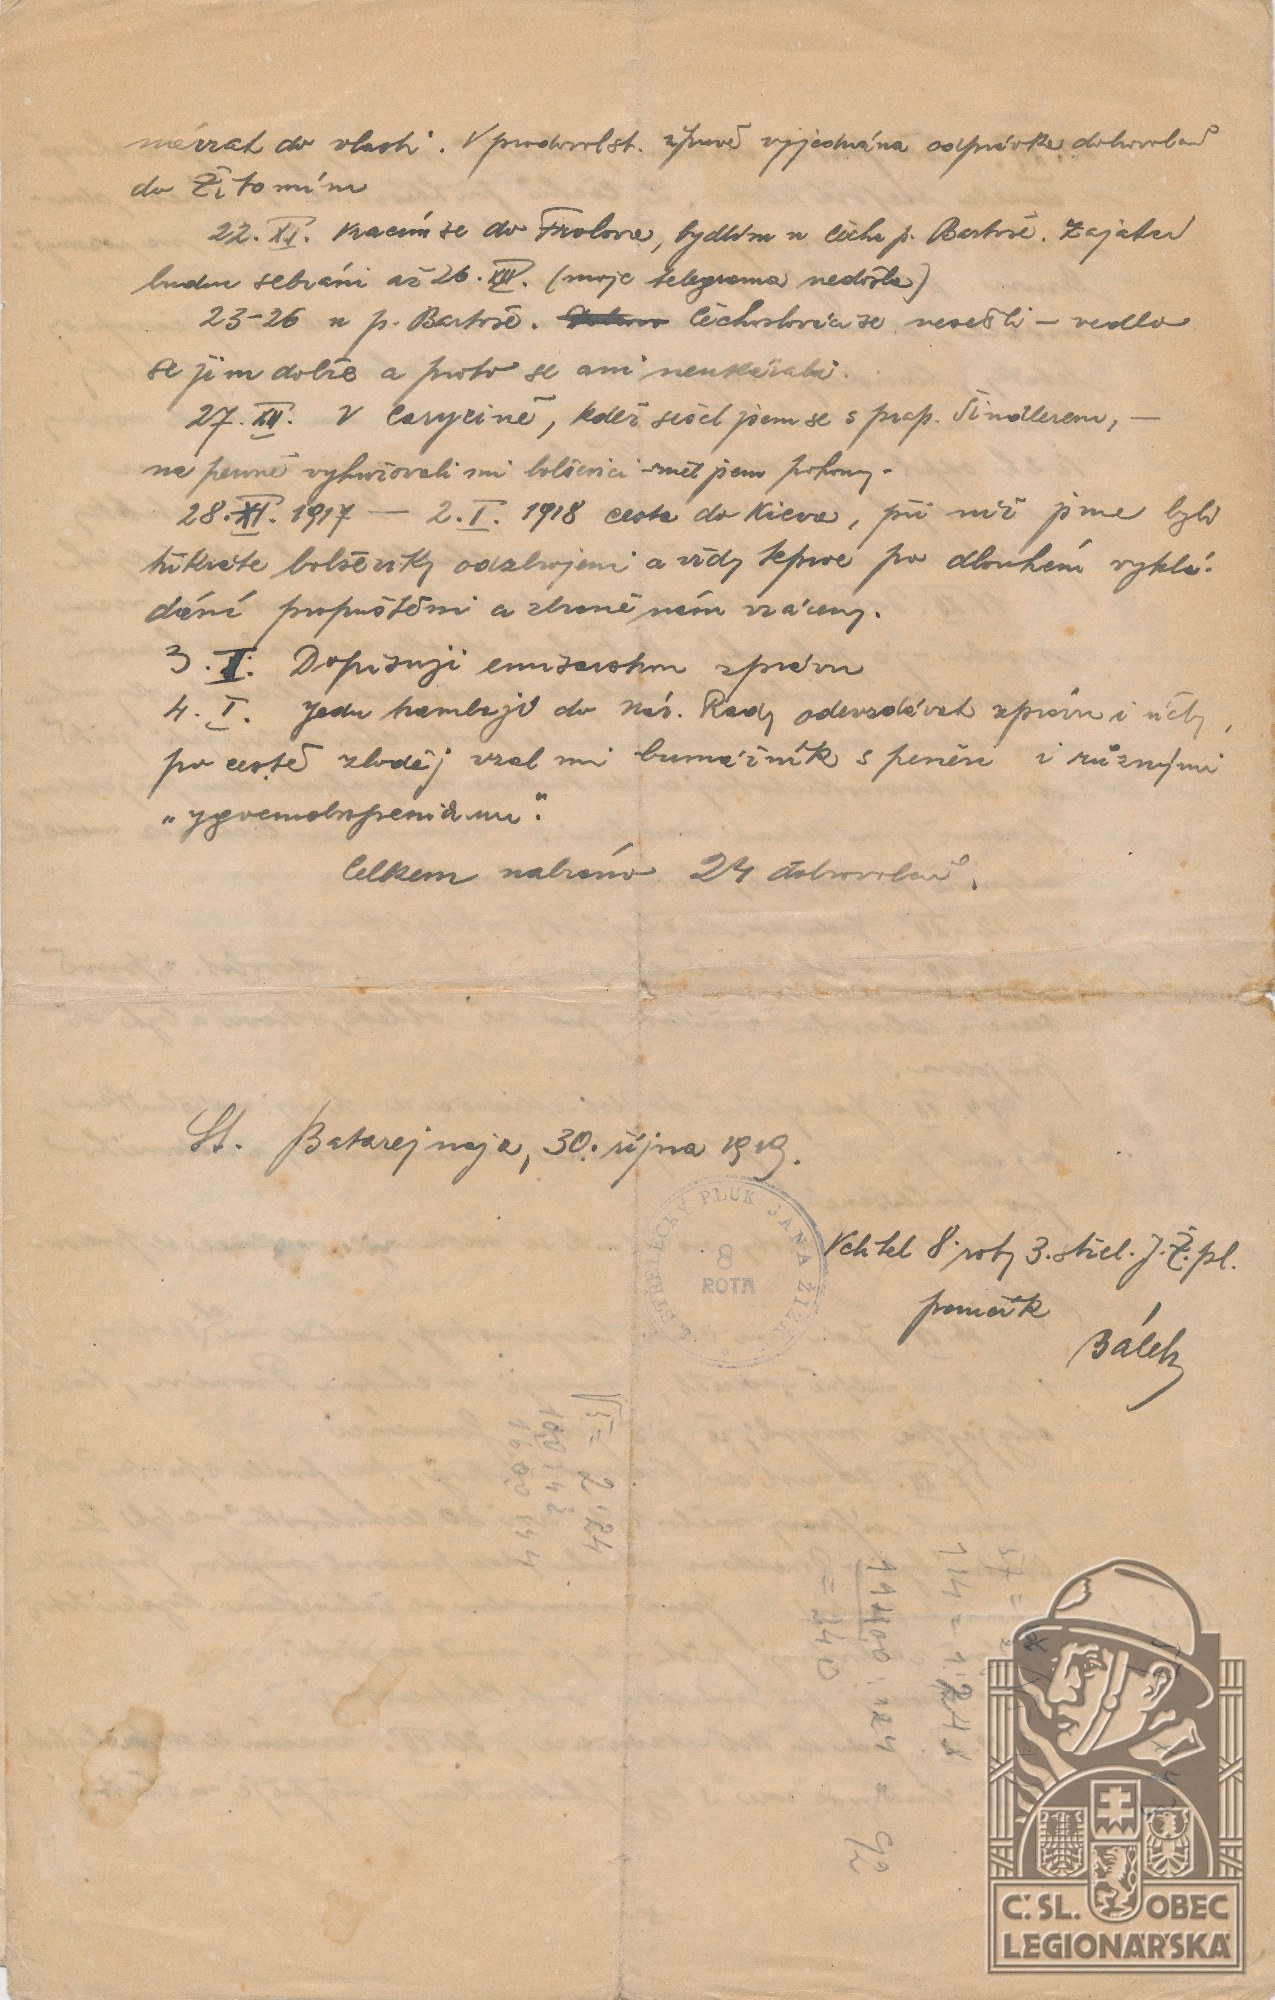 návrat do vlasti. V prodovolst. správě vyjednána odprávka dobrovolců
do Žitomíru
22. XII. vracím se do Frolova, bydlím u Čecha p. Bartoše. Zajatci
budou sebráni až 26. XII. (moje telegrama nedošla)
23-26 u p. Bartoše. Čechoslováci se nesešli – vedlo
se jim dobře a proto se ani neukázali.
27. XII. V Carycině, kdež sešel jsem se s prap. Šindlerem, –
na pevně vyhrožovali mi bolševici měl jsem pohony.
28. XII. 1917 – 2. I. 1918 cesta do Kieva, při níž jsme byli
třikráte bolševiky odzbrojeni a vždy teprve po dlouhém vyklá-
dání propuštěni a zbraně nám vráceny.
3. I. Dopisuji emisarskou zprávu
4. I. Jedu trambají do Nár. Rady odevzdávat zprávu i účty,
po cestě zloděj vzal mi bumážník s penězi i různými
"
Celkem nabráno 24 dobrovolců.
St. Batarejnaja, 30. října 1919.
STŘELECKÝ PLUK JANA ŽIŽKY
8
ROTA
Velitel 8. roty 3. střel. J. Ž. pl.
poručík
Bálek
Č.SL. OBEC
LEGIONÁŘSKÁ